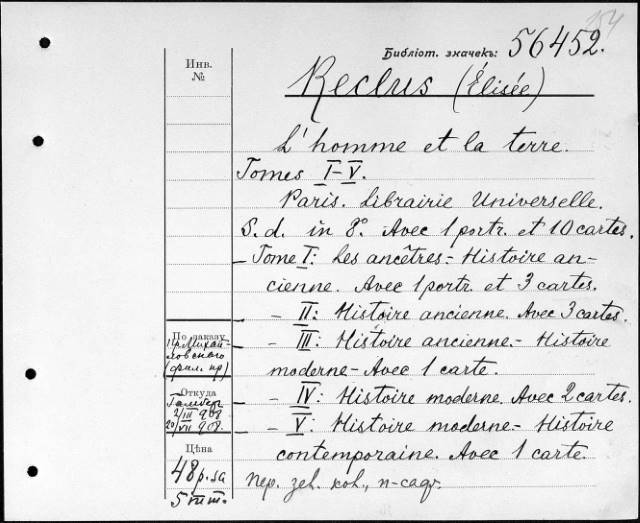 Библіот. значекъ: 56452.
Reclus (Élisée)
L'homme et la terre.
Tomes I-V.
Paris. Librairie Universelle.
S.d. in 8º. Avec 1 portr. et 10 cartes.
- Tome I: Les ancêtres.- Histoire an-
cienne. Avec 1 portr. et 3 cartes.
- - II: Histoire ancienne. Avec 3 cartes.
- - III: Histoire ancienne.- Histoire
moderne- Avec 1 carte.
- - IV: Histoire moderne. Avec 2 cartes.
- - V: Histoire moderne.- Histoire
contemporaine. Avec 1 carte.
Пер. зел. кол.,
Инв.
№
По заказу
Михай-
ловскаго
Откуда
2/III 908
20/VII 908.
Цѣна
48 р. за
5 тт.